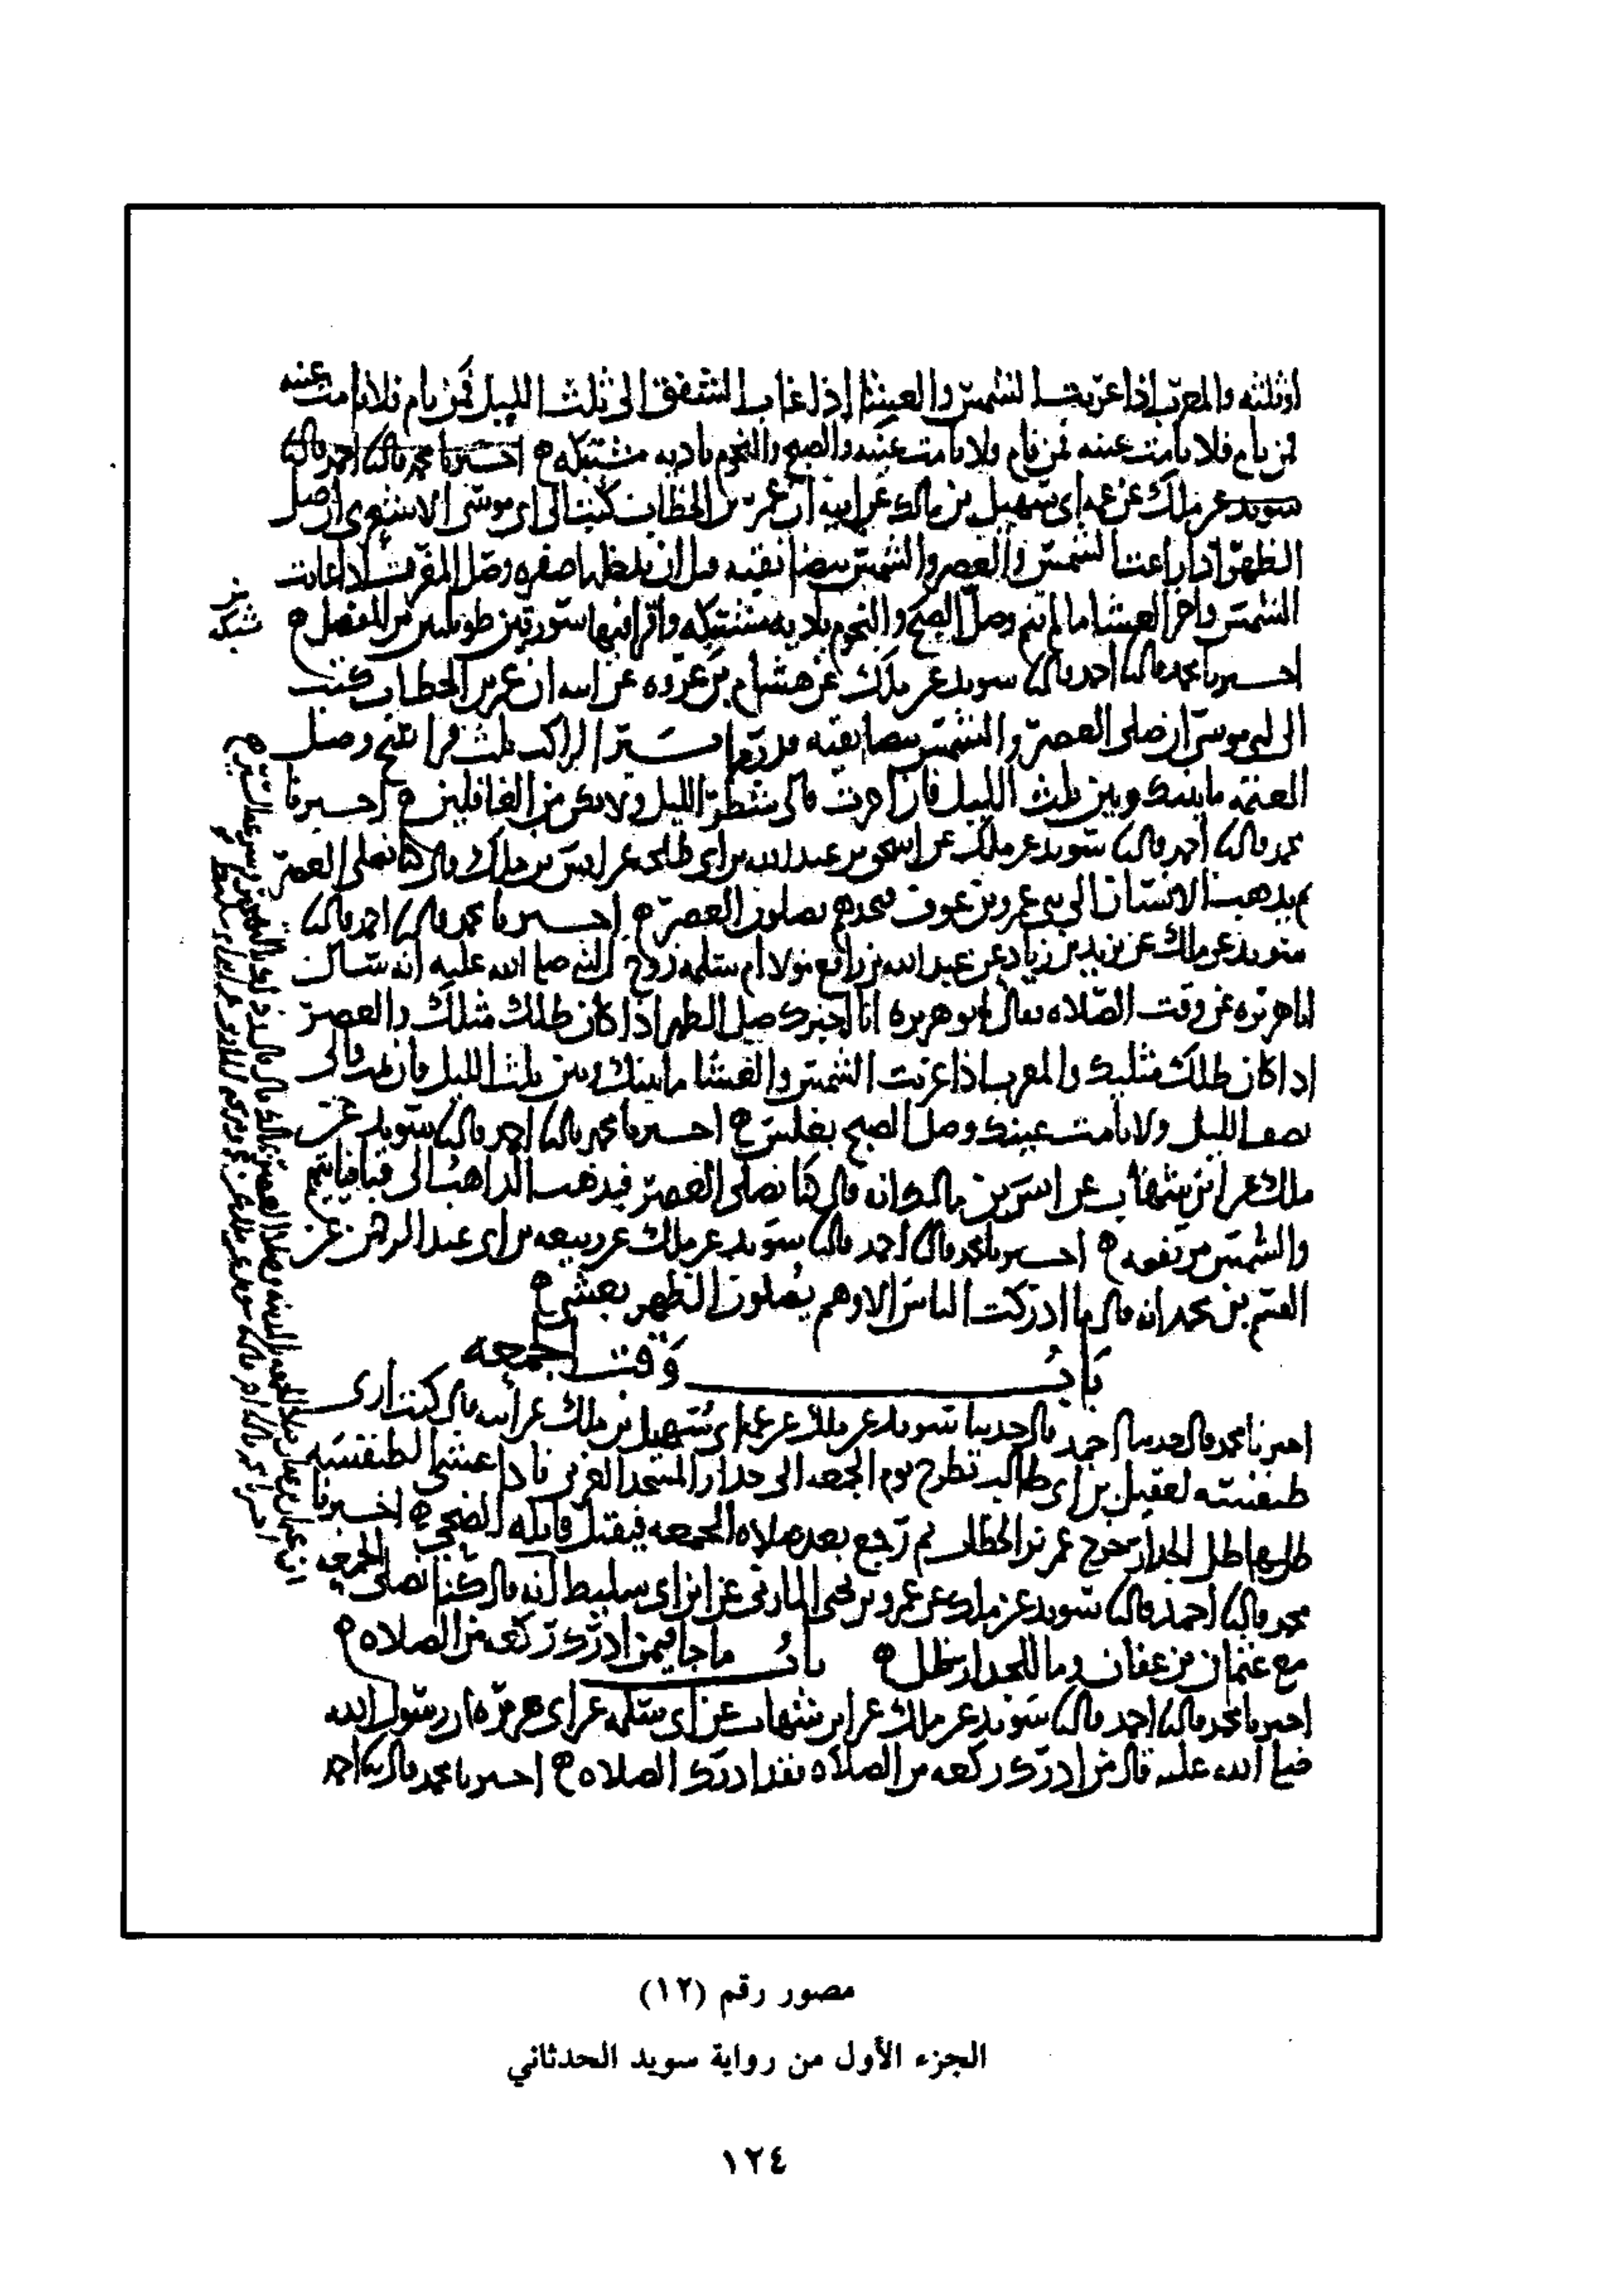 او ثلثه والمغرب اذا غربت الشمس والعشا اذا غاب الشفق الى ثلث الليل فمن نام فلا نامت عينه
فمن نام فلا نامت عينه فمن نام فلا نامت عينه والصبح والنجوم باديه مشتبكه اخبرنا محمد قال نا احمد قال نا
سويد عن ملك عن عمه ابى سهيل بن مالك عن ابيه ان عمر بن الخطاب كتب الى ابى موسى الاشعرى ان صل
الظهر اذا زاغت الشمس والعصر والشمس بيضا نقيه قبل ان يدخلها صفره وصل المغرب اذا غابت
الشمس واخر العشا ما لم تنم وصل الصبح والنجوم باديه مشتبكه واقرا فيها سورتين طويلتين من المفصل
اخبرنا محمد قال نا احمد قال نا سويد عن ملك عن هشام بن عروه عن ابيه ان عمر بن الخطاب كتب
الى ابى موسى ان صلى العصر والشمس بيضا نقيه قدر ما يسير الراكب ثلث فراسخ وصل
العتمه ما بينك وبين ثلث الليل فان اخرت فالى شطر الليل ولا تكن من الغافلين اخبرنا
محمد قال نا احمد قال نا سويد عن ملك عن اسحق بن عبد الله بن ابى طلحه عن انس بن ملك قال كنا نصلى العصر
ثم يذهب الانسان الى بنى عمرو بن عوف فيجدهم يصلون العصر اخبرنا محمد قال نا احمد قال نا
سويد عن ملك عن يزيد بن زياد عن عبد الله بن رافع مولا ام سلمه زوج النبي صلى الله عليه انه سال
ابا هريره عن وقت الصلاه فقال ابو هريره انا اخبرك صل الظهر اذا كان ظلك مثلك والعصر
اذا كان ظلك مثليك والمغرب اذا غربت الشمس والعشا ما بينك وبين ثلث الليل فان نمت الى
نصف الليل ولا نامت عينك وصل الصبح بغلس اخبرنا محمد قال نا احمد قال نا سويد عن
ملك عن ابن شهاب عن انس بن مالك انه قال كنا نصلى العصر فيذهب الذاهب الى قبا فياتيهم
والشمس مرتفعه اخبرنا محمد قال نا احمد قال نا سويد عن ملك عن ربيعه بن ابى عبد الرحمن عن
القسم بن محمد انه قال ما ادركت الناس الا وهم يصلون الظهر بعشى
باب وقت الجمعه
اخبرنا محمد قال حدثنا احمد قال حدثنا سويد عن ملك عن عمه ابى سهيل بن ملك عن ابيه قال كنت ارى
طنفسه لعقيل بن ابى طالب تطرح يوم الجمعه الى جدار المسجد الغربى فاذا غشى الطنفسه
كلها ظل الجدار خرج عمر بن الخطاب ثم نرجع بعد صلاه الجمعه فيقيل قايله الضحى اخبرنا
محمد قال نا احمد قال نا سويد عن ملك عن عمرو بن يحيى المازنى عن ابن ابى سليط انه قال كنا نصلى الجمعه
مع عثمان بن عفان وما للجدار ظل باب ما جا فيمن ادرك ركعه من الصلاه
اخبرنا محمد قال نا احمد قال نا سويد عن ملك عن ابن شهاب عن ابى سلمه عن ابى هريره ان رسول الله
صلى الله عليه قال من ادرك ركعه من الصلاه فقد ادرك الصلاه اخبرنا محمد قال نا احمد
مصور رقم (١٢)
الجزء الأول من رواية سويد الحدثاني
١٢٤